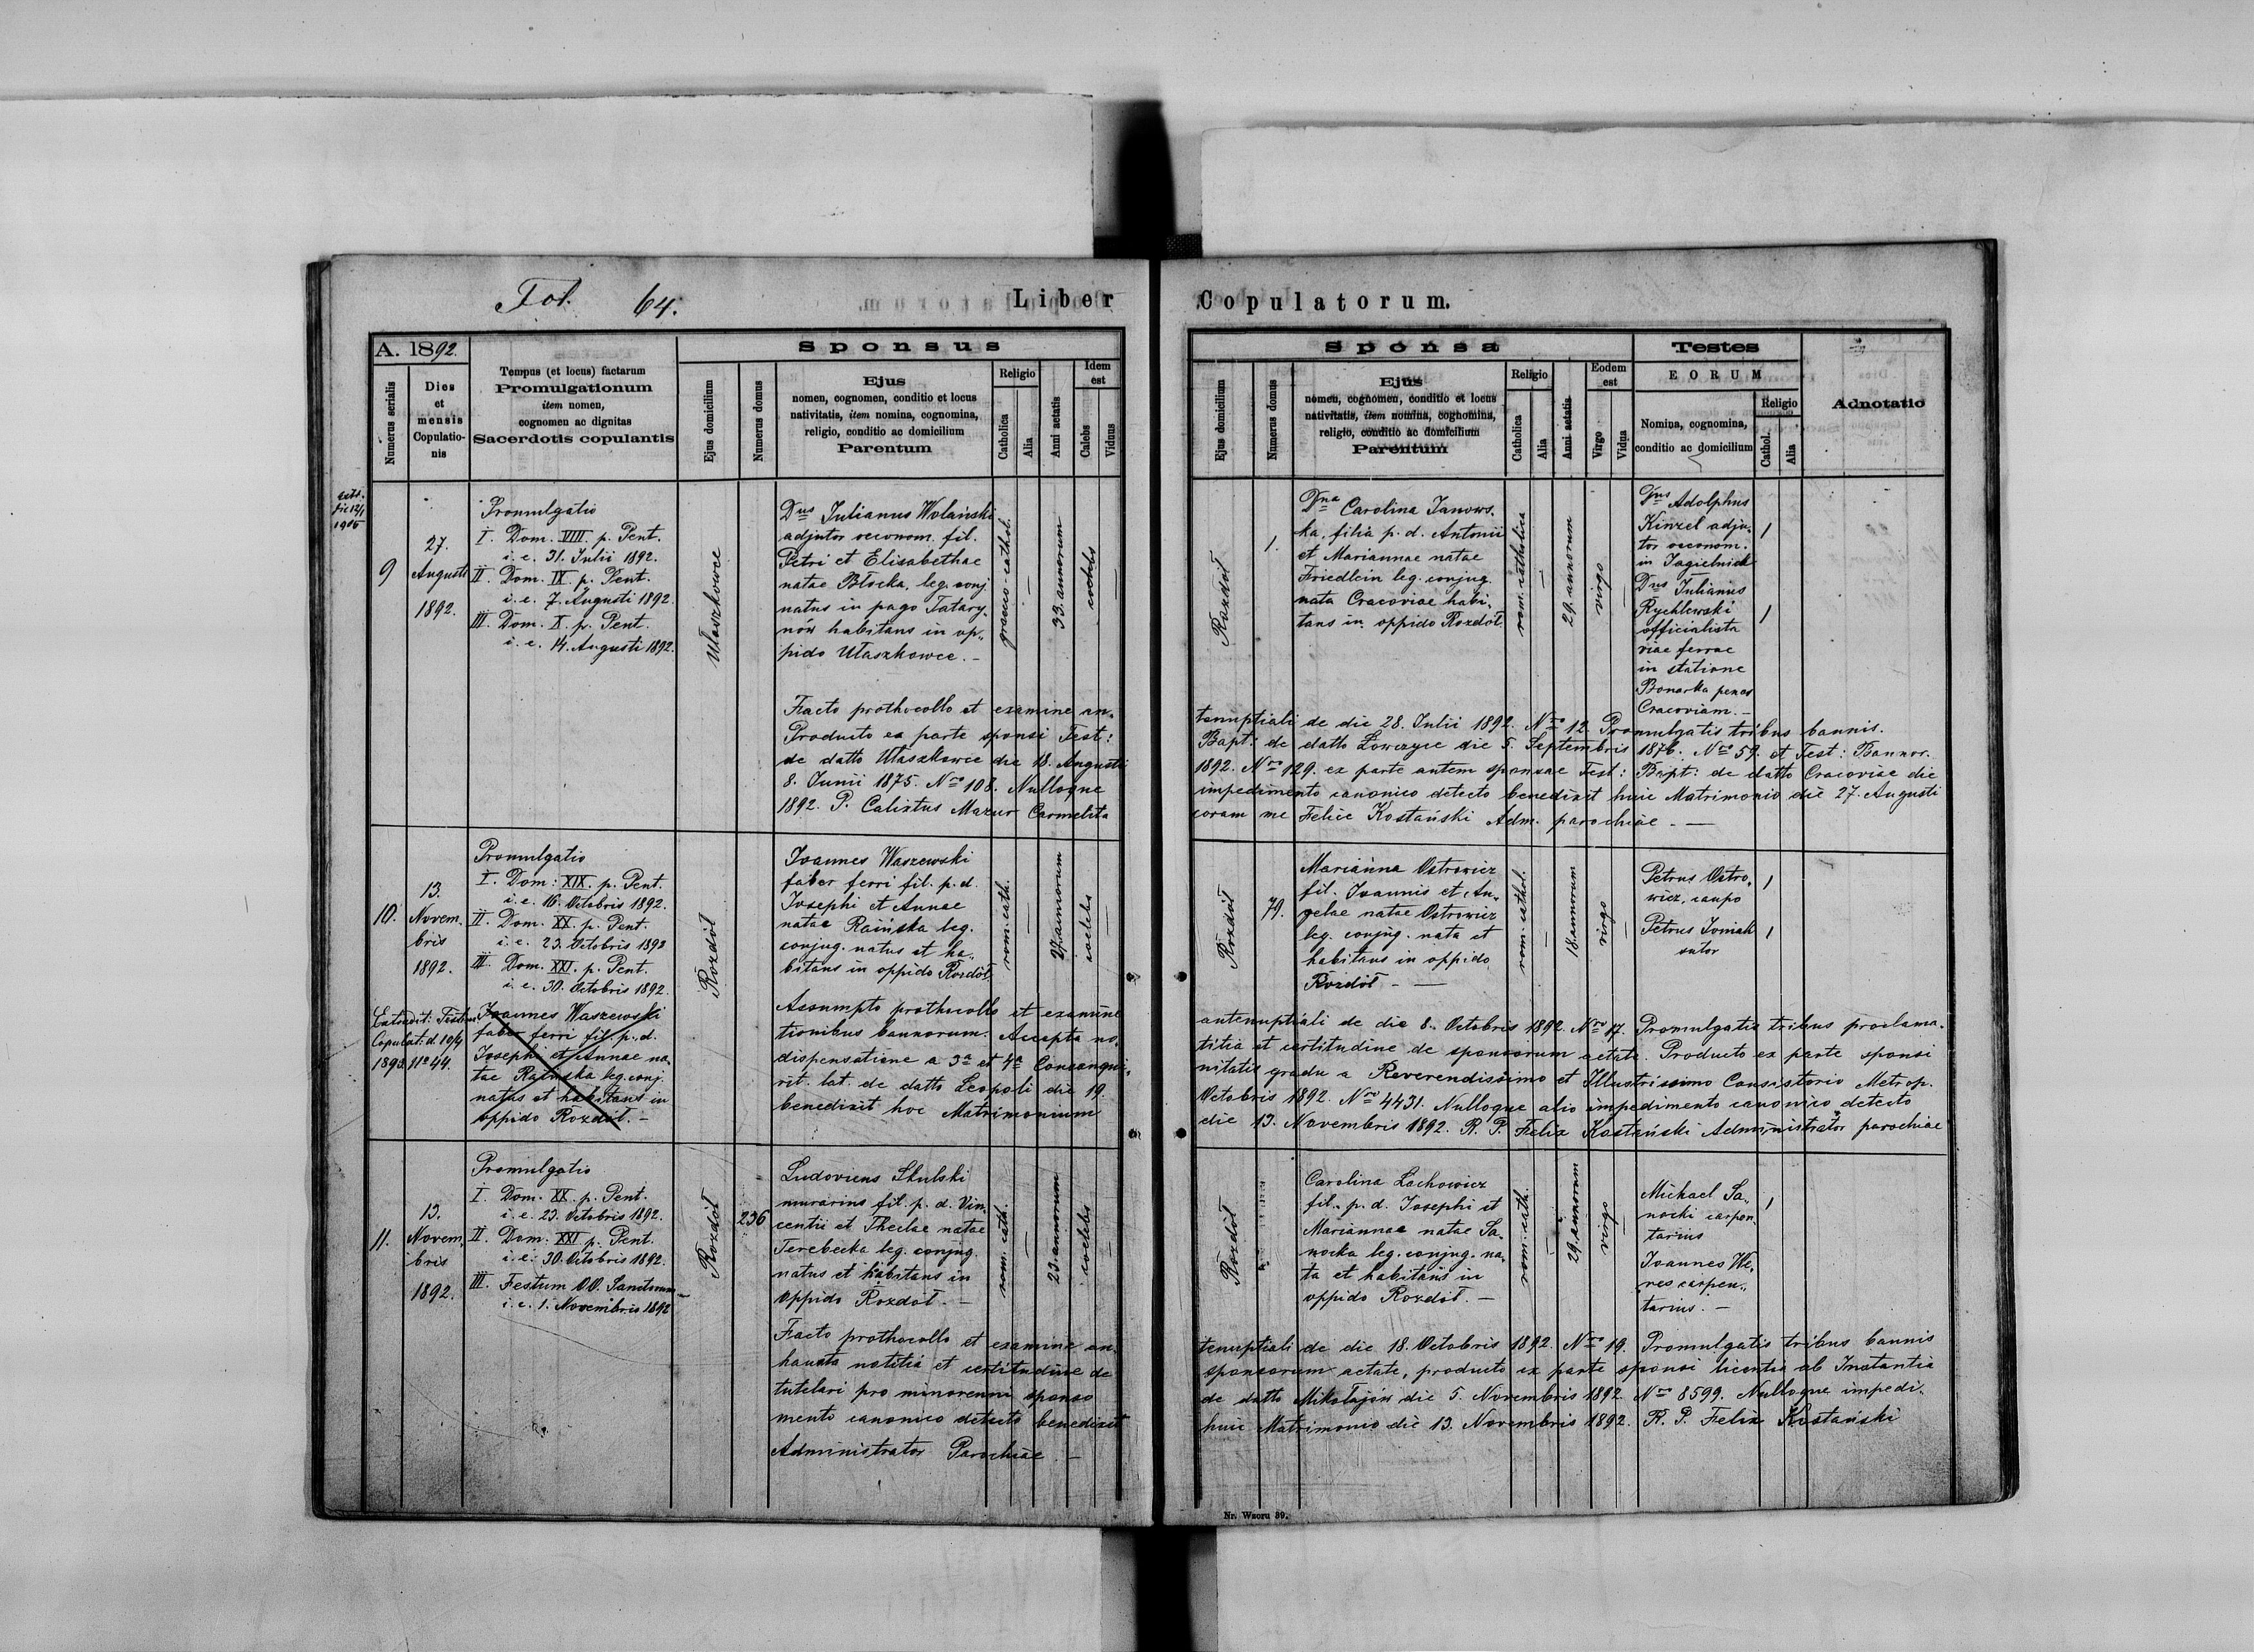 Fol. 64.
Liber
Copulatorum.
A. 1892.
Numerus serialis
Dies
et
mensis
Copulatio-
nis
Tempus (et locus) factarum
Promulgationum
item nomen,
cognomen ac dignitas
Sacerdotis copulantis
Sponsus
Ejus domicilium
Numerus domus
Ejus
nomen, cognomen, conditio et locus
nativitatis, item nomina, cognomina,
religio, conditio ac domicilium
Parentum
Religio
Catholica
Alia
Anni aetatis
Idem
est
Caelebs
Viduus
Sponsa
Ejus domicilium
Numerus domus
Ejus
nomen, cognomen, conditio et locus
nativitatis, item nomina, cognomina,
religio, conditio ac domicilium
Parentum
Religio
Catholica
Alia
Anni aetatis
Eodem
est
Virgo
Vidua
Testes
EORUM
Nomina, cognomina,
conditio ac domicilium
Religio
Cathol.
Alia
Adnotatio
die 12/1
9
27.
Augusti
1892.
Promulgatio
I. Dom. VIII. p. Pent.
i. e. 31. Julii 1892.
II. Dom. IX. p. Pent.
i. e. 7. Augusti 1892.
III. Dom. X. p. Pent.
i. e. 14. Augusti 1892.
Ułaszkowce
Dnus Julianus Wolański
adjutor oeconom. fil.
Petri et Elisabethae
natae Błocka, leg. conj.
natus in pago Tatary-
nów habitans in op-
pido Ułaszkowce. -
graeco-cathol.
33. annorum
coelebs
Rozdół
1.
Dna Carolina Janows-
ka, filia p. d. Antonii
et Mariannae natae
Friedlein leg. conjug.
nata Cracoviae habi-
tans in oppido Rozdół.
rom. catholica
29. annorum
virgo
Dnus Adolphus
Kinzel adju-
tor oeconom.
in Jagielnick
Dnus Julianus
Rychlewski
officialista
viae ferrae
in statione
Bonarka penes
Cracoviam. -
Facto prothocollo et examine an-
tenuptiali de die 28. Julii 1892. Nro 12. Promulgatis tribus bannis.
Producto ex parte sponsi Test:
Bapt: de datto Łowczyce die 5. Septembris 1876. Nro 59. et Test: Bannor.
de datto Ułaszkowce die 18. Augusti
1892. Nro 129. ex parte autem sponsae Test: Bapt: de datto Cracoviae die
8. Junii 1875. Nro 108. Nulloque
impedimento canonico detecto benedixit huic Matrimonio die 27. Augusti
1892. P. Calixtus Mazur Carmelita
coram me Felice Kostański Adm. parochiae. -
10.
13.
Novem-
bris
1892.
Promulgatio
I. Dom: XIX. p. Pent.
i. e. 16. Octobris 1892.
II. Dom. XX. p. Pent.
i. e. 23. Octobris 1892
III. Dom. XXI. p. Pent.
i. e. 30. Octobris 1892.
Joannes Waszewski
faber ferri fil. p. d.
Josephi et Annae na-
tae leg. conj.
natus et habitans in
oppido Rozdół. -
Copulat: d. 10/4
1893. No 44.
Rozdół
Joannes Waszewski
faber ferri fil. p. d.
Josephi et Annae
natae Raińska leg.
conjug. natus et ha-
bitans in oppido Rozdół.
rom. cath.
annorum
coelebs
Rozdół
79.
Marianna Ostrowicz
fil. Joannis et An-
gelae natae Ostrowicz
leg. conjug. nata et
habitans in oppido
Rozdół -
rom. cathol.
18. annorum
virgo
Petrus Ostro-
wicz, caupo
Petrus Joniak
sutor
Assumpto prothocollo et examine
antenuptiali de die 8. Octobris 1892. Nro 17. Promulgatis tribus proclama-
tionibus bannorum. Accepta no-
titia et certitudine de sponsorum aetate. Producto ex parte sponsi
dispensatione a 3a et 4a Consangui-
nitatis gradu a Reverendissimo et Illustrissimo Consistorio Metrop.
rit. lat. de datto Leopoli die 19.
Octobris 1892. Nro 4431. Nulloque alio impedimento canonico detecto
benedixit hoc Matrimonium
die 13. Novembris 1892. R. P. Felix Kostański Administrator parochiae
11.
13.
Novem-
bris
1892.
Promulgatio
I. Dom. XX. p. Pent.
i. e. 23. Octobris 1892.
II. Dom: XXI p. Pent.
i. e. 30. Octobris 1892.
III. Festum OO. Sanctorum
i. e. 1. Novembris 1892
Rozdół
236
Ludovicus Skulski
murarius fil. p. d. Vin-
centii et Theclae natae
Terebecka leg. conjug.
natus et habitans in
oppido Rozdół. -
rom. cath.
23. annorum
coelebs
Rozdół
Carolina Lachowicz
fil. p. d. Josephi et
Mariannae natae Sa-
nocka leg. conjug. na-
ta et habitans in
oppido Rozdół. -
rom. cath.
29. annorum
virgo
Michael Sa-
nocki carpen-
tarius
Joannes We-
res carpen-
tarius. -
Facto prothocollo et examine an-
tenuptiali de die 18. Octobris 1892. Nro 19. Promulgatis tribus bannis
hausta notitia et certitudine de
sponsorum aetate, producto ex parte sponsi licentia ab Instantia
tutelari pro minorenni sponso
de datto Mikołajów die 5. Novembris 1892. Nro 8599. Nulloque impedi-
mento canonico detecto benedixit
huic Matrimonio die 13. Novembris 1892. R. P. Felix Kostański
Administrator Parochiae. -
Nr. Wzoru 39.